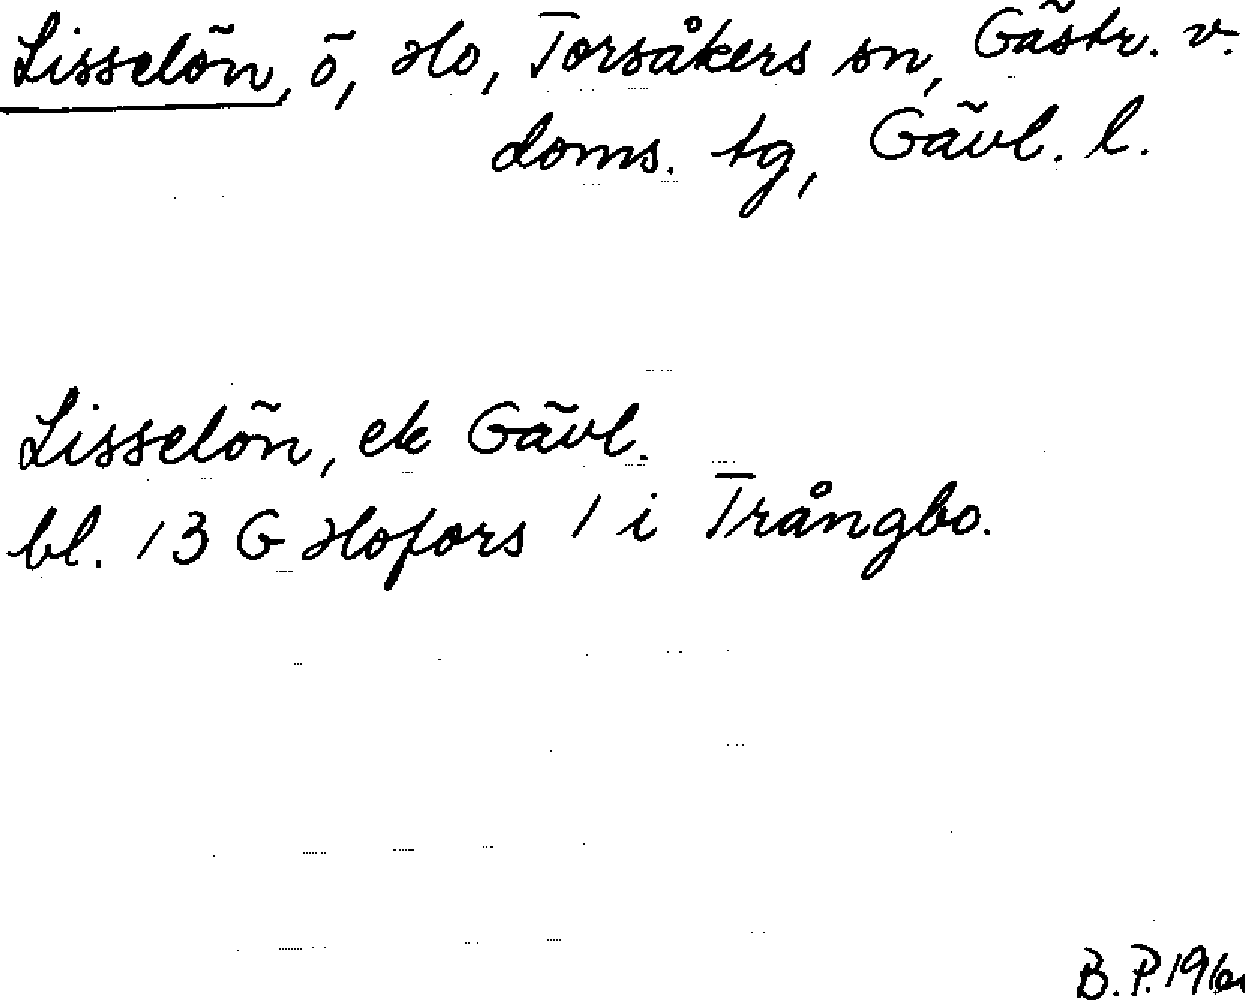 Lisselön, ö, Ho, Torsåkers sn, Gästr. v.
doms. tg, Gävl. l.
Lisselön, ek Gävl.
bl. 13 G Hofors 1 i Trångbo.
B. P.